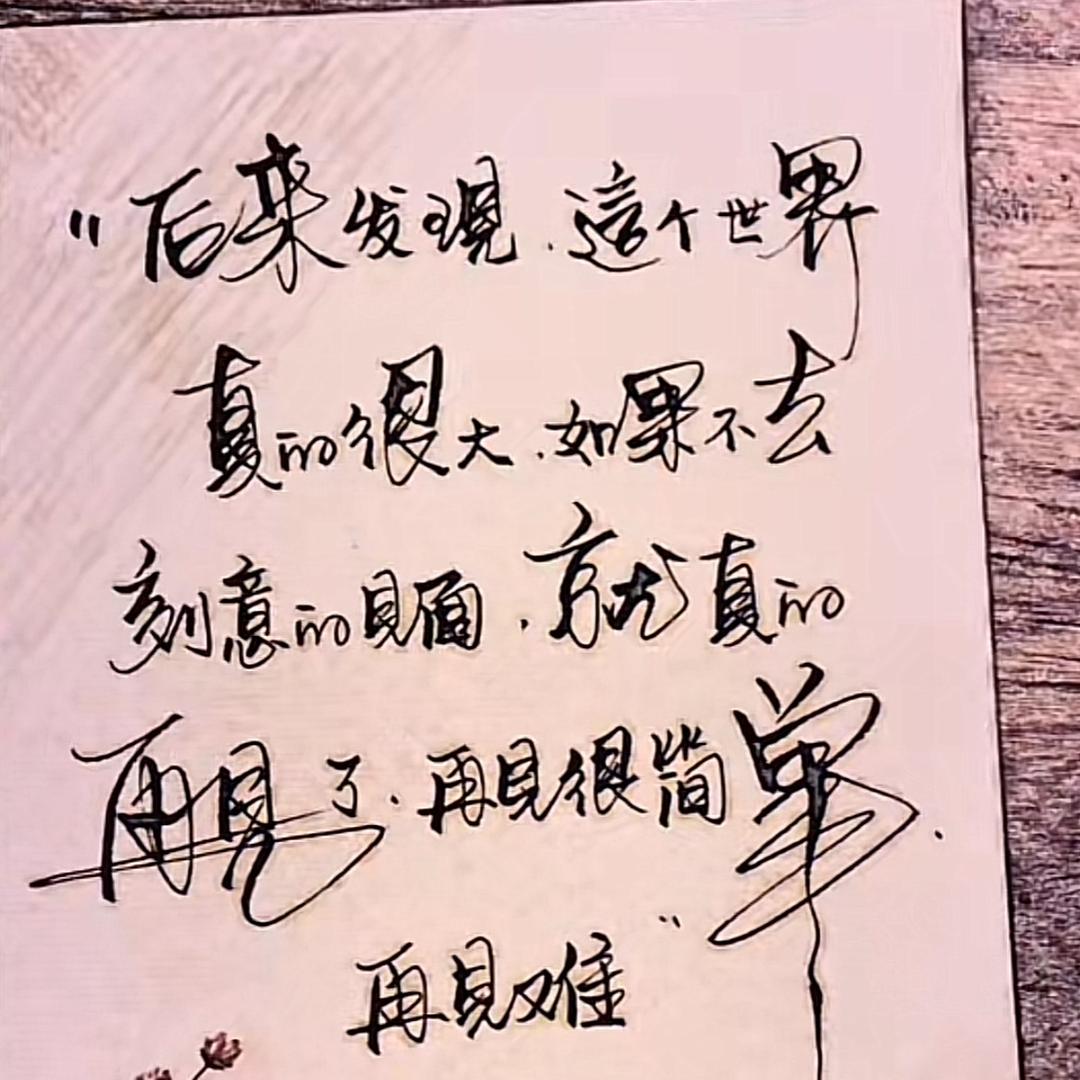 "后来发現.這个世界
真的很大.如果不去
刻意的見面.就真的
再見了.再見很简单.
再見难"